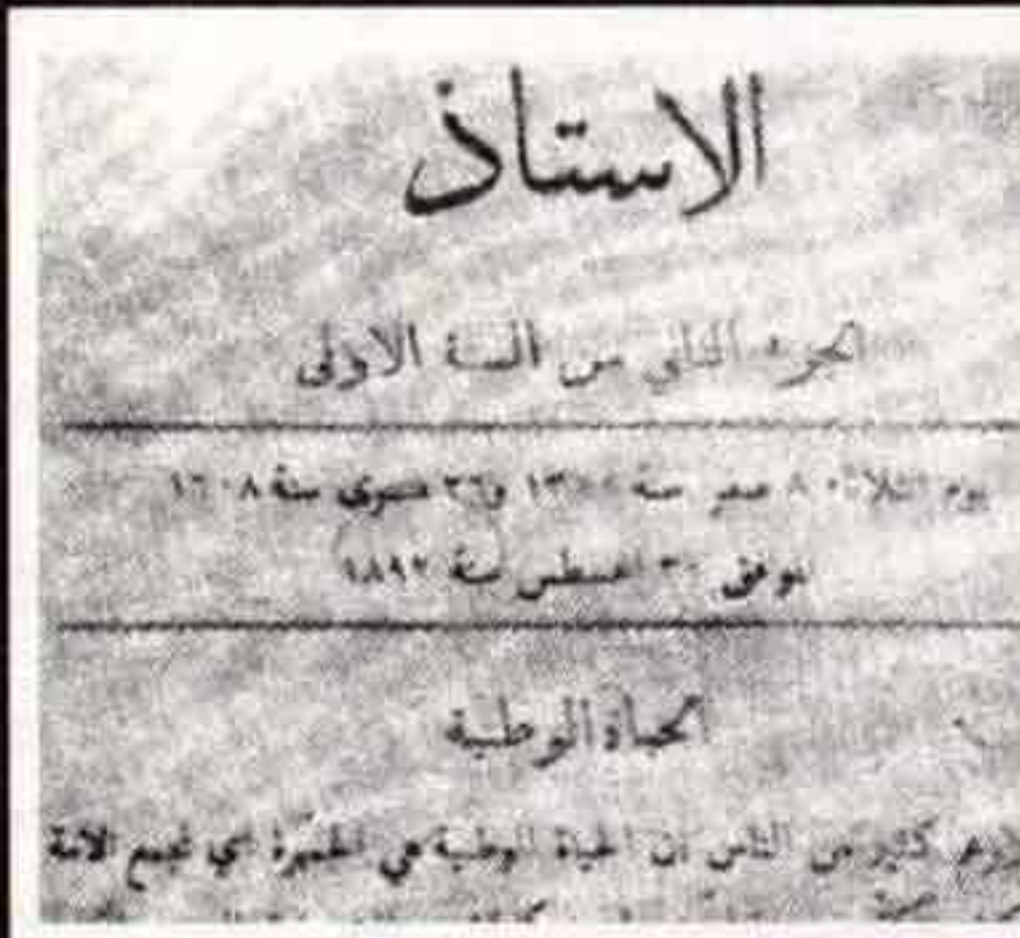 الاستاذ
الجزء الثاني من السنة الاولى
يوم الثلاثاء ٨ صفر سنة و٢٦ مسرى سنة ١٦٠٨
الموافق ٣٠ اغسطس سنة ١٨٩٢
الحياة الوطنية
كثير من الناس ان الحياة الوطنية هي تجمع الامة